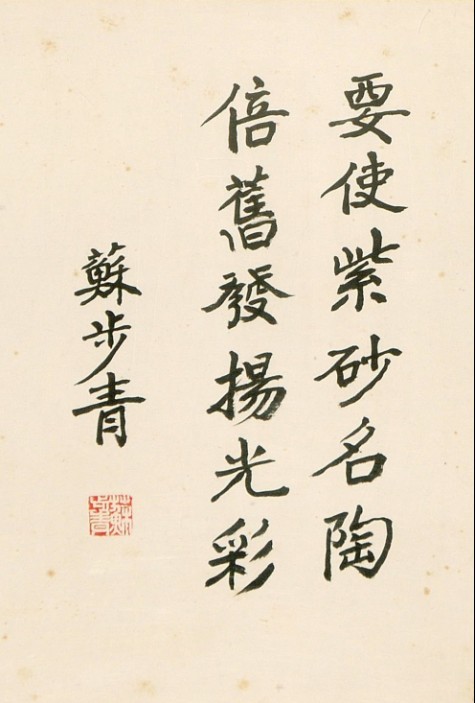 要使紫砂名陶
倍舊發揚光彩
蘇步青
蘇步青